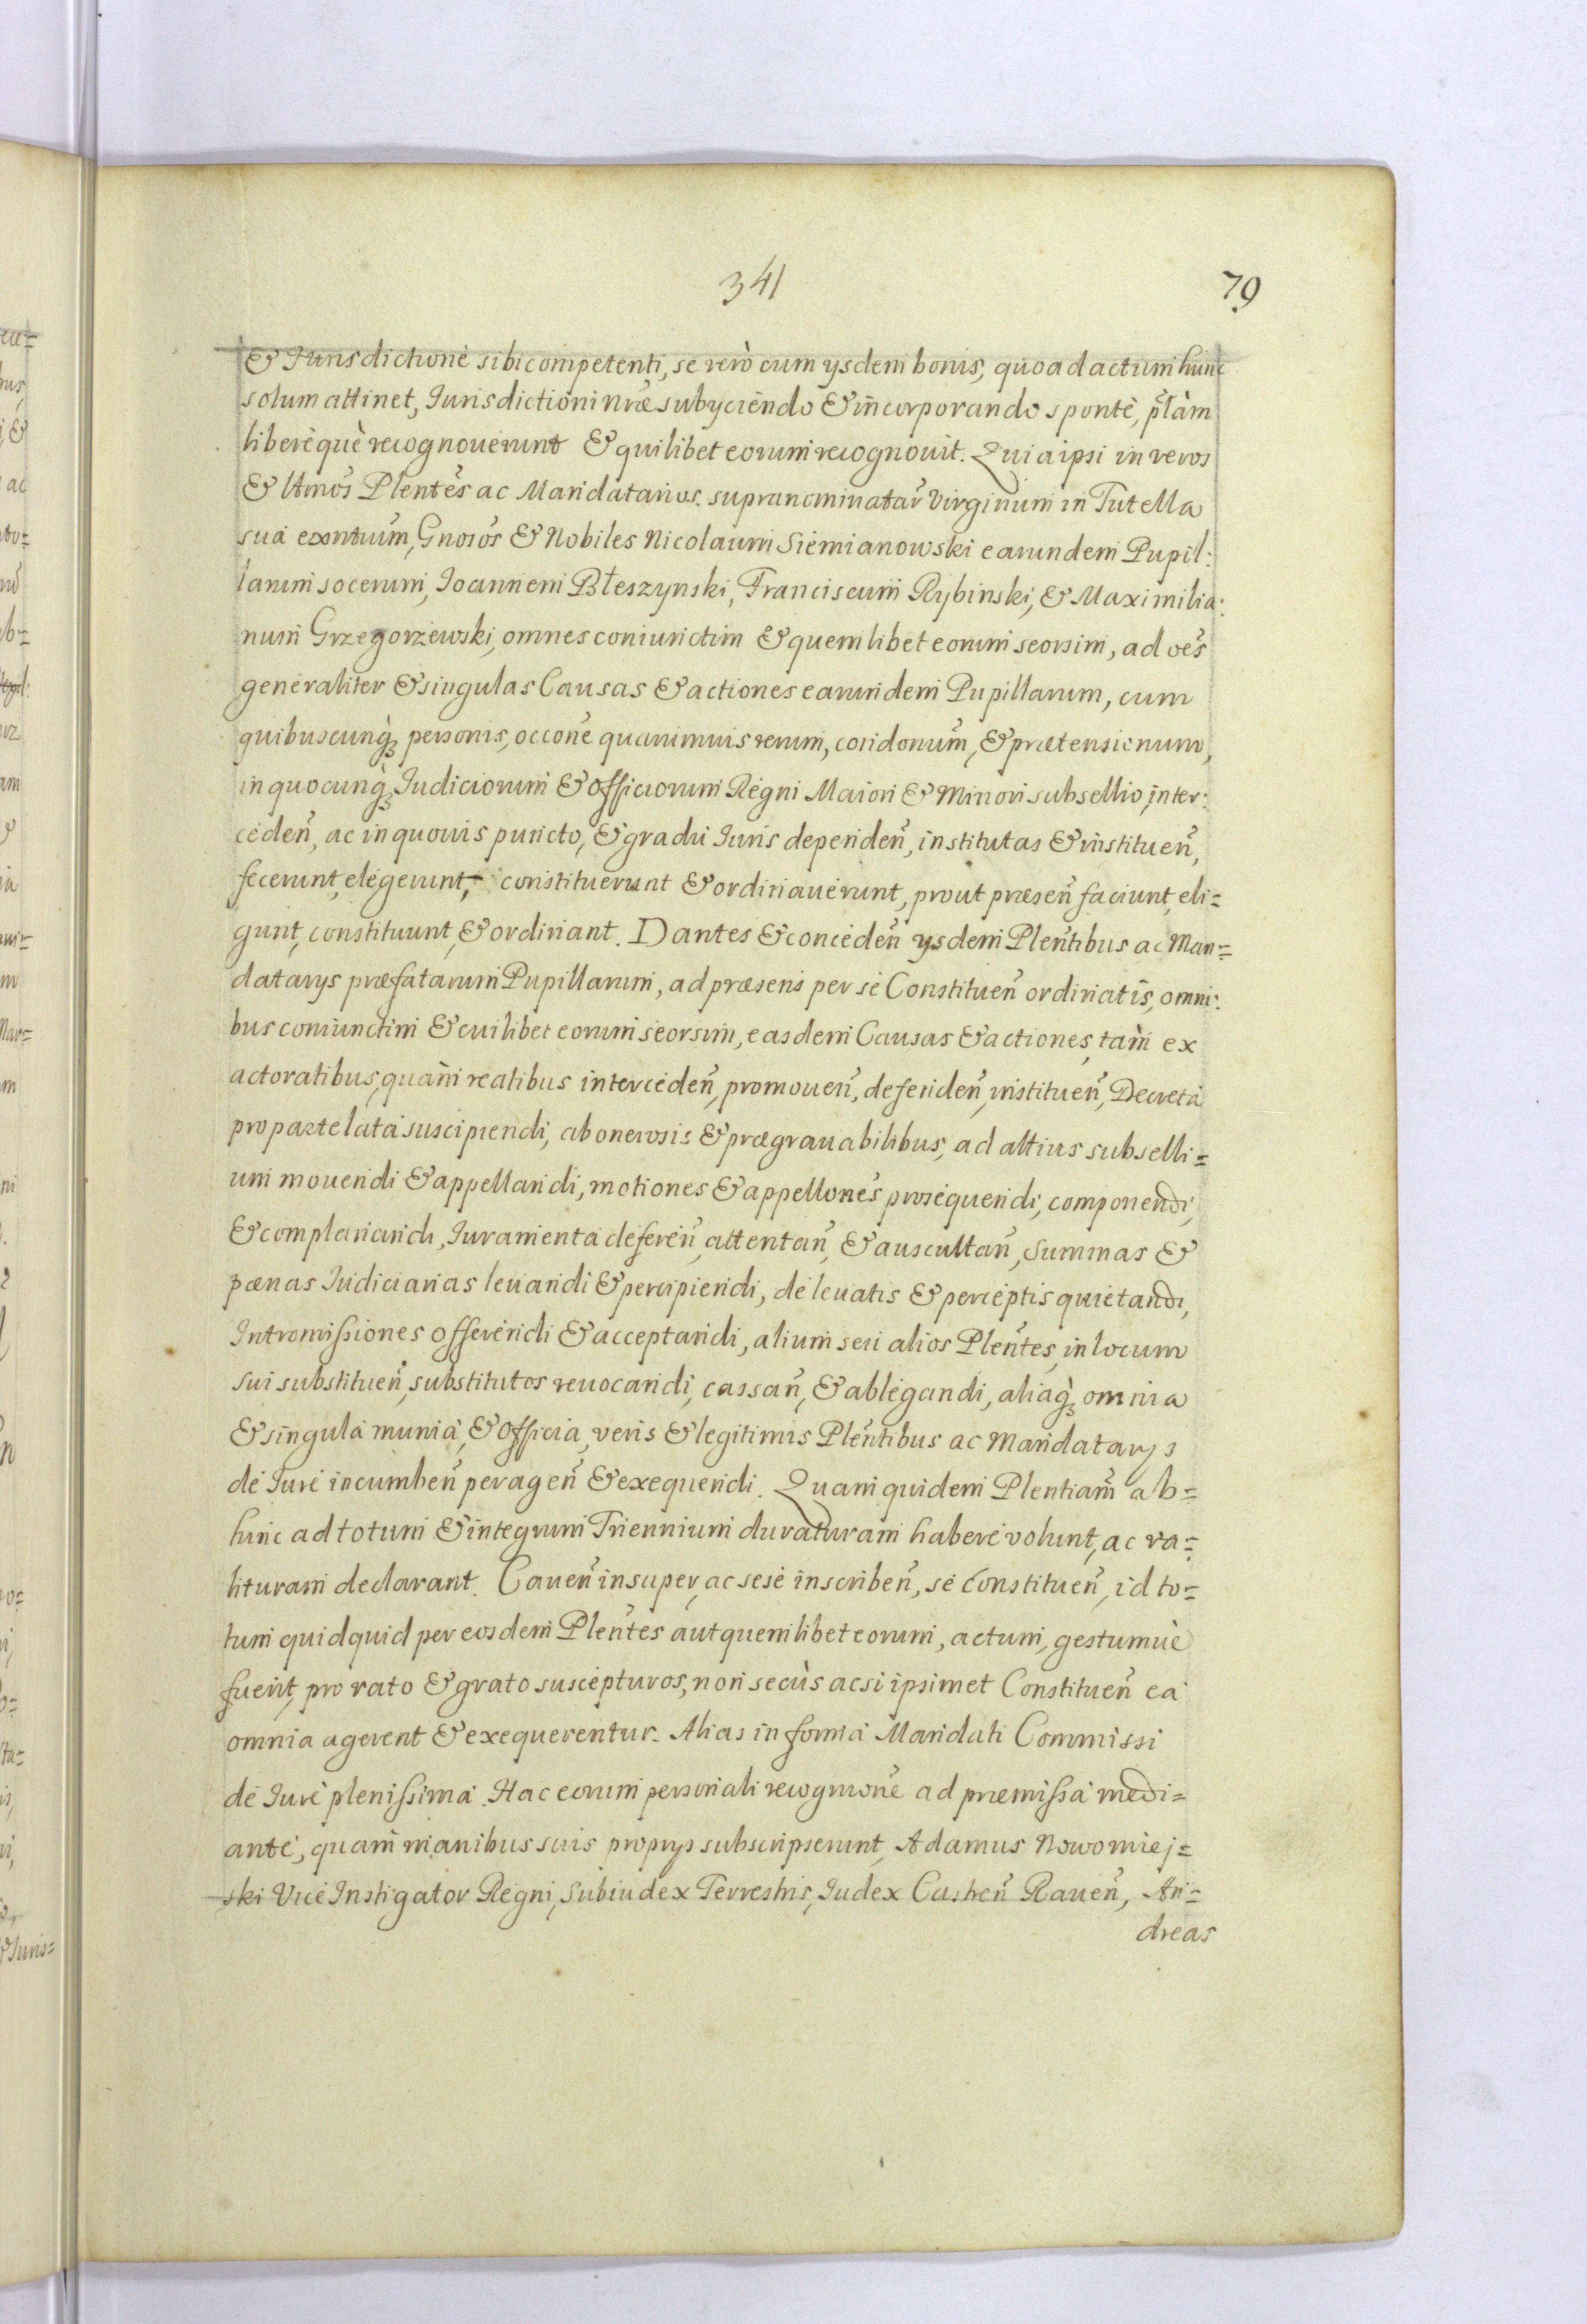 341
79
& Jurisdictione sibi competenti, se verò cum ysdem bonis, quoad actum hunc
solum attinet, Jurisdictioni nr̃æ subyciendo & incorporando spontè, pãlàm
liberèquè recognoverunt & quilibet eorum recognouit. Quia ipsi in veros
& lt̃mos Plent̃es ac Mandatarios supranominatar̃ Virginum in Tutella
sua exñtium, Gnosõs & Nobiles Nicolaum Siemianowski earundem Pupil:
larum socerum, Joannem Błeszynski, Franciscum Rybinski, & Maximilia:
num Grzegorzewski, omnes coniunctim & quemlibet eorum seorsim, ad oẽs
generaliter & singulas Causas & actiones earundem Pupillarum, cum
quibuscunq; personis, occõne quarumuis rerum, condonum̃, & prætensionum,
in quocunq; Judiciorum & Officiorum Regni Maiori & Minori subsellio, inter:
ceden̄, ac in quouis puncto, & gradu Juris dependen̄, institutas & instituen̄,
fecerunt, elegerunt, constituerunt & ordinauerunt, prout præsen̄ faciunt, eli=
gunt, constituunt, & ordinant. Dantes & conceden̄ ysdem Plent̃ibus ac Man=
datarys præfatarum Pupillarum, ad præsens per se Constituen̄ ordinatis, omni:
bus coniunctim & cuilibet eorum seorsim, easdem Causas & actiones, tàm ex
actoratibus, quàm reatibus interceden̄, promouen̄, defenden̄, instituen̄, Decreta
pro parte lata suscipiendi, ab onerosis & prægrauabilibus, ad altius subselli=
um mouendi & appellandi, motiones & appellõnes prosequendi, componendi,
& complanandi, Juramenta deferen̄, attentan̄, & auscultan̄, Summas &
pœnas Judiciarias leuandi & percipiendi, de leuatis & perceptis quietandi,
Intromissiones offerendi & acceptandi, alium seu alios Plent̃es, in locum
sui substituen̄, substitutos reuocandi, cassan̄, & ablegandi, aliaq; omnia
& singula munia, & Officia, veris & legitimis Plent̃ibus ac Mandatarys
de Jure incumben̄ peragen̄ & exequendi. Quam quidem Plentiam̃ ab=
hinc ad totum & integrum Triennium duraturam habere volunt, ac va=
lituram declarant. Cauen̄ insuper, ac sese inscriben̄, se Constituen̄, id to=
tum quidquid per eosdem Plent̃es aut quemlibet eorum, actum, gestumuè
fuerit, pro rato & grato suscepturos, non secùs ac si ipsimet Constituen̄ ea
omnia agerent & exequerentur. Alias in forma Mandati Commissi
de Jure plenissima. Hac eorum personali recognicõne ad præmissa medi=
ante, quam manibus suis proprys subscripserunt, Adamus Nowomiej=
ski Vice Instigator Regni, Subiudex Terrestris, Judex Castren̄ Rauen̄, An=
dreas